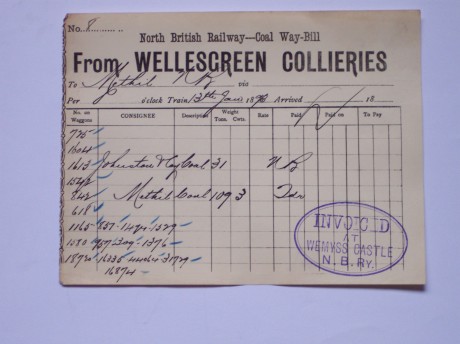 No. 8
North British Railway—Coal Way-Bill
From WELLESGREEN COLLIERIES
To Methil N B via
Per o'clock Train, 13th Jany 18 Arrived 18
No. on Waggons CONSIGNEE Description Weight Tons. Cwts. Rate Paid Paid on To Pay
725
1604
1613 Johnston & Coy Coal 31 N B
1542
842 Methil Coal 109 3
618
1165 857 1424 1329
1580 957 309 1376
1874
16874
INVOICED
AT
WEMYSS CASTLE
N. B. RY.